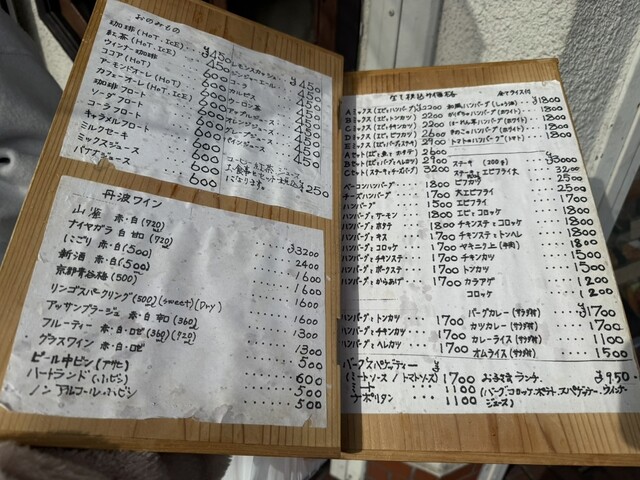 おのみもの
珈琲 (HOT・ICE) ¥450
紅茶 (HOT・ICE) 450
ウィンナー珈琲 600
ココア (HOT) 600
アーモンドオーレ (HOT) 600
カフェオーレ (HOT・ICE) 600
珈琲フロート 600
ソーダフロート 600
コーラフロート 600
キャラメルフロート 600
ミルクセーキ 600
ミックスジュース 600
バナナジュース 600
レモンスカッシュ ¥450
ジンジャーエール 450
コーラ 450
カルピス 450
ウーロン茶 450
アップルジュース 450
オレンジジュース 450
グレープジュース 450
パインジュース 450
コーヒー、紅茶、ジュース
お食事とセット 250
になります。
丹波ワイン
山崖 赤・白 (720) ¥3200
ナイヤガラ 白 甘口 (720) 2400
にごり 赤・白 (500) 1600
新酒 赤・白 (500) 1600
京都青谷梅 (500) 1600
リンゴスパークリング (500) (sweet) (Dry) 1600
アッサンブラージュ 赤 白 辛口 (360) 1300
フルーティー 赤・白・ロゼ (360) (720) 1300
グラスワイン 赤・白・ロゼ 500
ビール中ビン (アサヒ) 600
ハートランド (小ビン) 500
ノンアルコール・小ビン 500
全て税込み価格 全てライス付
Aミックス (エビとハンバーグ) ¥2200
Bミックス (エビとトンカツ) 2600
Cミックス (エビとチキンカツ) 2600
Dミックス (エビとビフカツ) 2900
Aセット (エビ、魚、ホタテ) 2600
Bセット (エビ、バーグ、ヘレカツ) 2900
Cセット (ステーキ、チーズバーグ) 3200
ベーコンハンバーグ 1800
チーズハンバーグ 1700
ハンバーグ 1500
ハンバーグとサーモン 1800
ハンバーグとホタテ 1800
ハンバーグとキス 1700
ハンバーグとコロッケ 1700
ハンバーグとチキンステ 1700
ハンバーグとポークステ 1700
ハンバーグとからあげ 1700
ハンバーグとトンカツ 1700
ハンバーグとチキンカツ 1700
ハンバーグとヘレカツ 1700
和風ハンバーグ (しょう油) ¥1800
きのこハンバーグ (ホワイト) 1800
トマトハンバーグ (トマト) 1800
ステーキ (200g) ¥3000
ステーキとエビフライ 3200
ビフカツ 2500
大エビフライ 2500
エビフライ 1700
エビとコロッケ 1800
チキンステとエビ 1800
チキンステとトンヘレ 1700
ヤキニク (牛肉) 1800
チキンカツ 1500
トンカツ 1500
カラアゲ 1200
コロッケ 1200
バーグカレー (サラダ付) ¥1700
カツカレー (サラダ付) 1700
カレーライス (サラダ付) 1100
オムライス (サラダ付) 1500
バーグスパゲッティー
(ミートソース/トマトソース) ¥1700
ミート 1100
ナポリタン 1100
お子さまランチ ¥950
(バーグ、コロッケ、ポテト、スパゲッティー、ウインナー
ジュース)